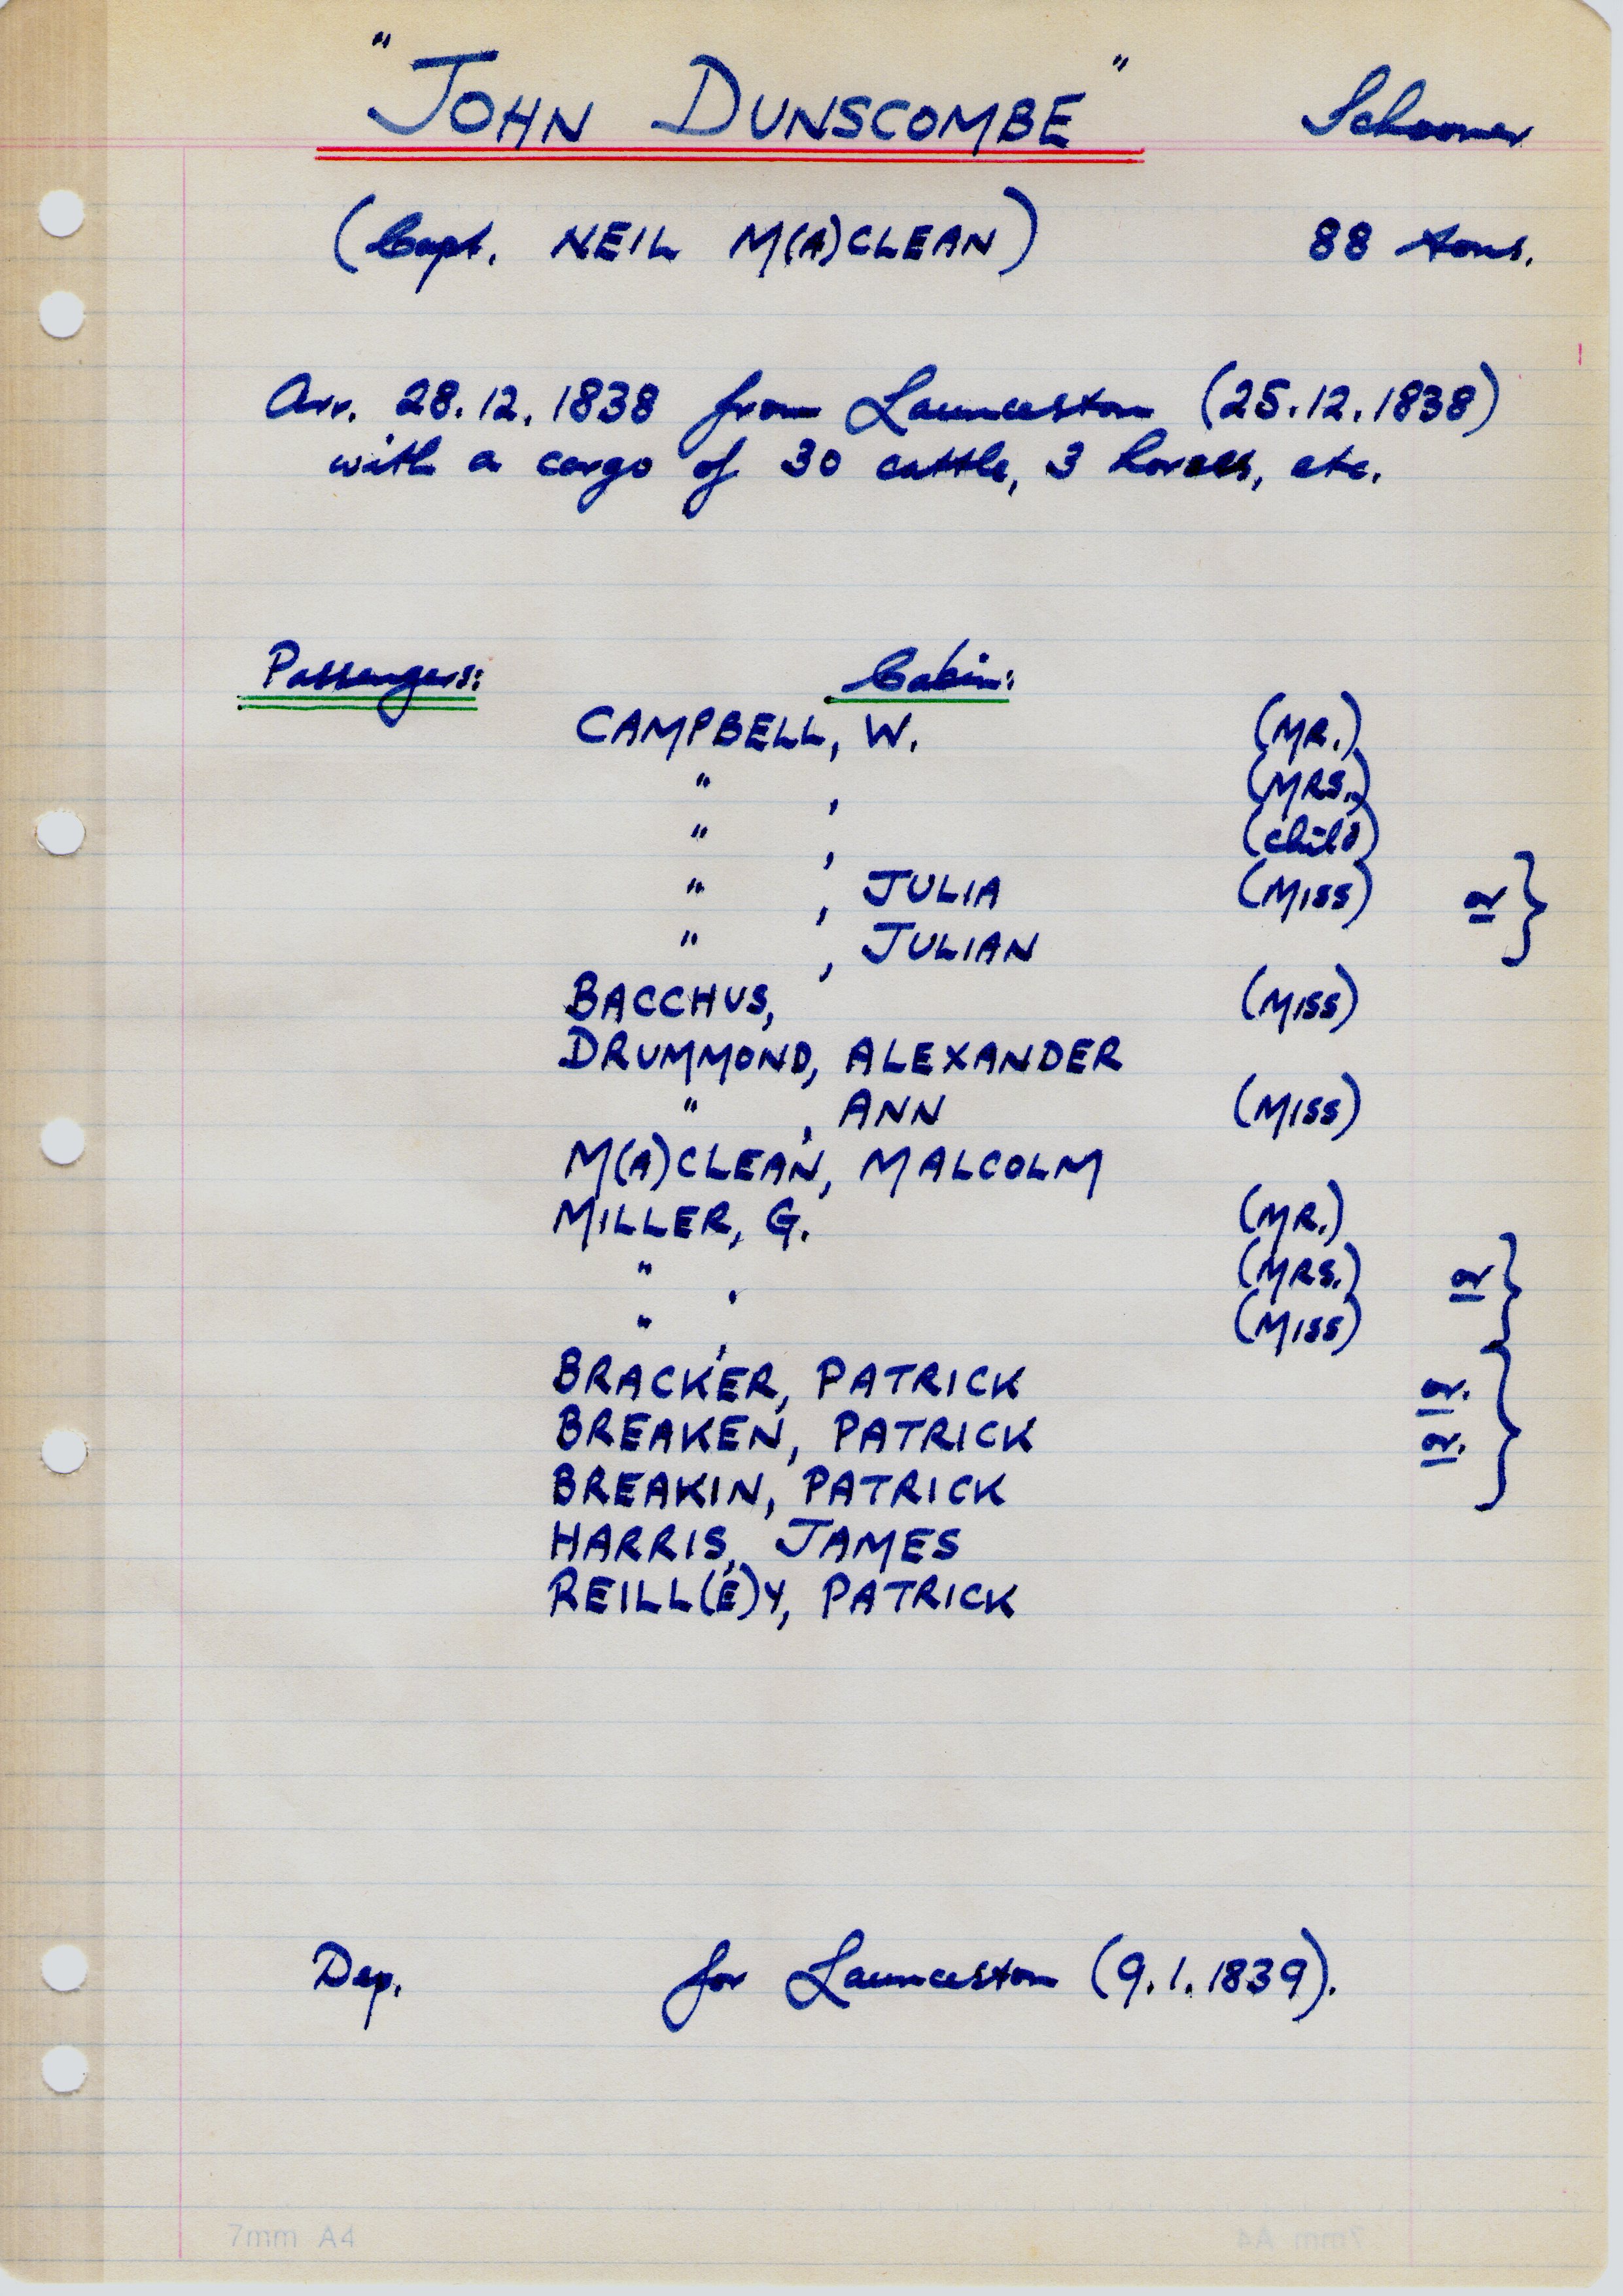 "JOHN DUNSCOMBE" Schooner
(Capt. NEIL M(A)CLEAN) 88 tons.
Arr. 28.12.1838 from Launceston (25.12.1838)
with a cargo of 30 cattle, 3 horses, etc.
Passengers: Cabin:
CAMPBELL, W. (MR.)
" , (MRS.)
" , (child)
" , JULIA (MISS) or }
" , JULIAN
BACCHUS, (MISS)
DRUMMOND, ALEXANDER
" , ANN (MISS)
M(A)CLEAN, MALCOLM
MILLER, G. (MR.)
" , (MRS.) or }
" , (MISS)
BRACKER, PATRICK or. }
BREAKEN, PATRICK or.
BREAKIN, PATRICK
HARRIS, JAMES
REILL(E)Y, PATRICK
Dep. for Launceston (9.1.1839).
7mm A4 7mm A4